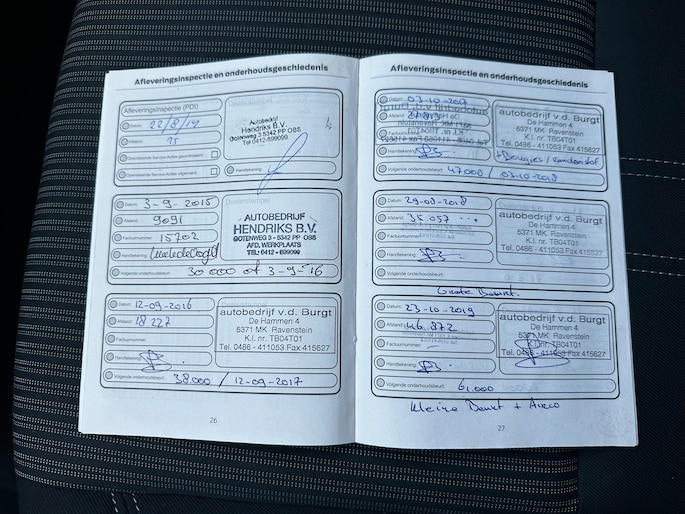 Afleveringsinspectie en onderhoudsgeschiedenis
Afleveringsinspectie (PDI)
Datum:
Afstand: 15
Autobedrijf
Hendriks B.V.
Gotenweg 3 5342 PP OSS
Tel 0412-699099
Handtekening:
Datum: 3-9-2015
Afstand: 9091
Factuurnummer: 15702
Handtekening:
Volgende onderhoudsbeurt: 30000 of 3-9-'16
AUTOBEDRIJF
HENDRIKS B.V.
GOTENWEG 3 - 5342 PP OSS
AFD. WERKPLAATS
TEL: 0412 - 699099
Datum: 12-09-2016
Afstand: 18227
Factuurnummer:
Handtekening:
Volgende onderhoudsbeurt: 38.000 / 12-09-2017
autobedrijf v.d. Burgt
De Hammen 4
5371 MK Ravenstein
K.I. nr. TB04T01
Tel. 0486 - 411053 Fax 415627
26
Afleveringsinspectie en onderhoudsgeschiedenis
Datum: 03-10-
Afstand:
Factuurnummer:
Handtekening:
Volgende onderhoudsbeurt: 47000 / 03-10-2018
autobedrijf v.d. Burgt
De Hammen 4
5371 MK Ravenstein
K.I. nr. TB04T01
Tel. 0486 - 411053 Fax 415627
+ Bougies /
Datum: 29-08-2018
Afstand: 35.057
Factuurnummer:
Handtekening:
Volgende onderhoudsbeurt:
autobedrijf v.d. Burgt
De Hammen 4
5371 MK Ravenstein
K.I. nr. TB04T01
Tel. 0486 - 411053 Fax 415627
Grote Beurt
Datum: 23-10-2019
Afstand: 46.872
Factuurnummer:
Handtekening:
Volgende onderhoudsbeurt: 61.000
autobedrijf v.d. Burgt
De Hammen 4
5371 MK Ravenstein
K.I. nr. TB04T01
Tel. 0486 - 411053 Fax 415627
Kleine Beurt + Airco
27